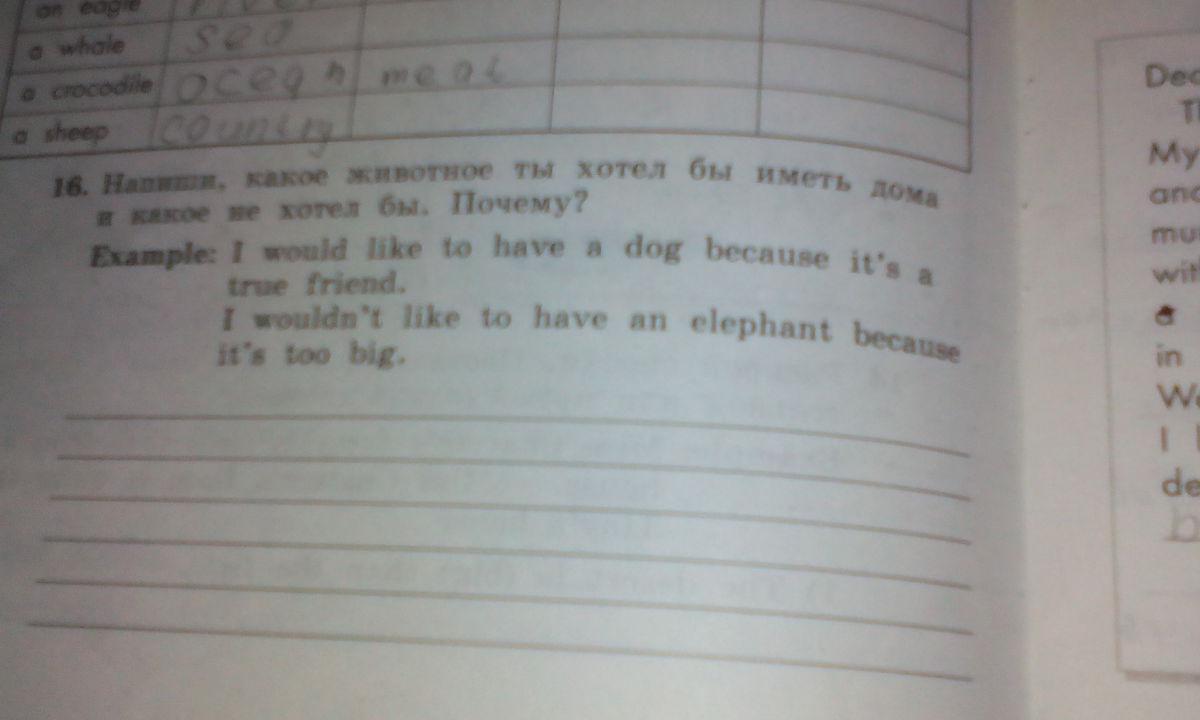 an eagle
a whale sea
a crocodile ocean meat
a sheep country
16. Напиши, какое животное ты хотел бы иметь дома
и какое не хотел бы. Почему?
Example: I would like to have a dog because it's a
true friend.
I wouldn't like to have an elephant because
it's too big.
My
in
I